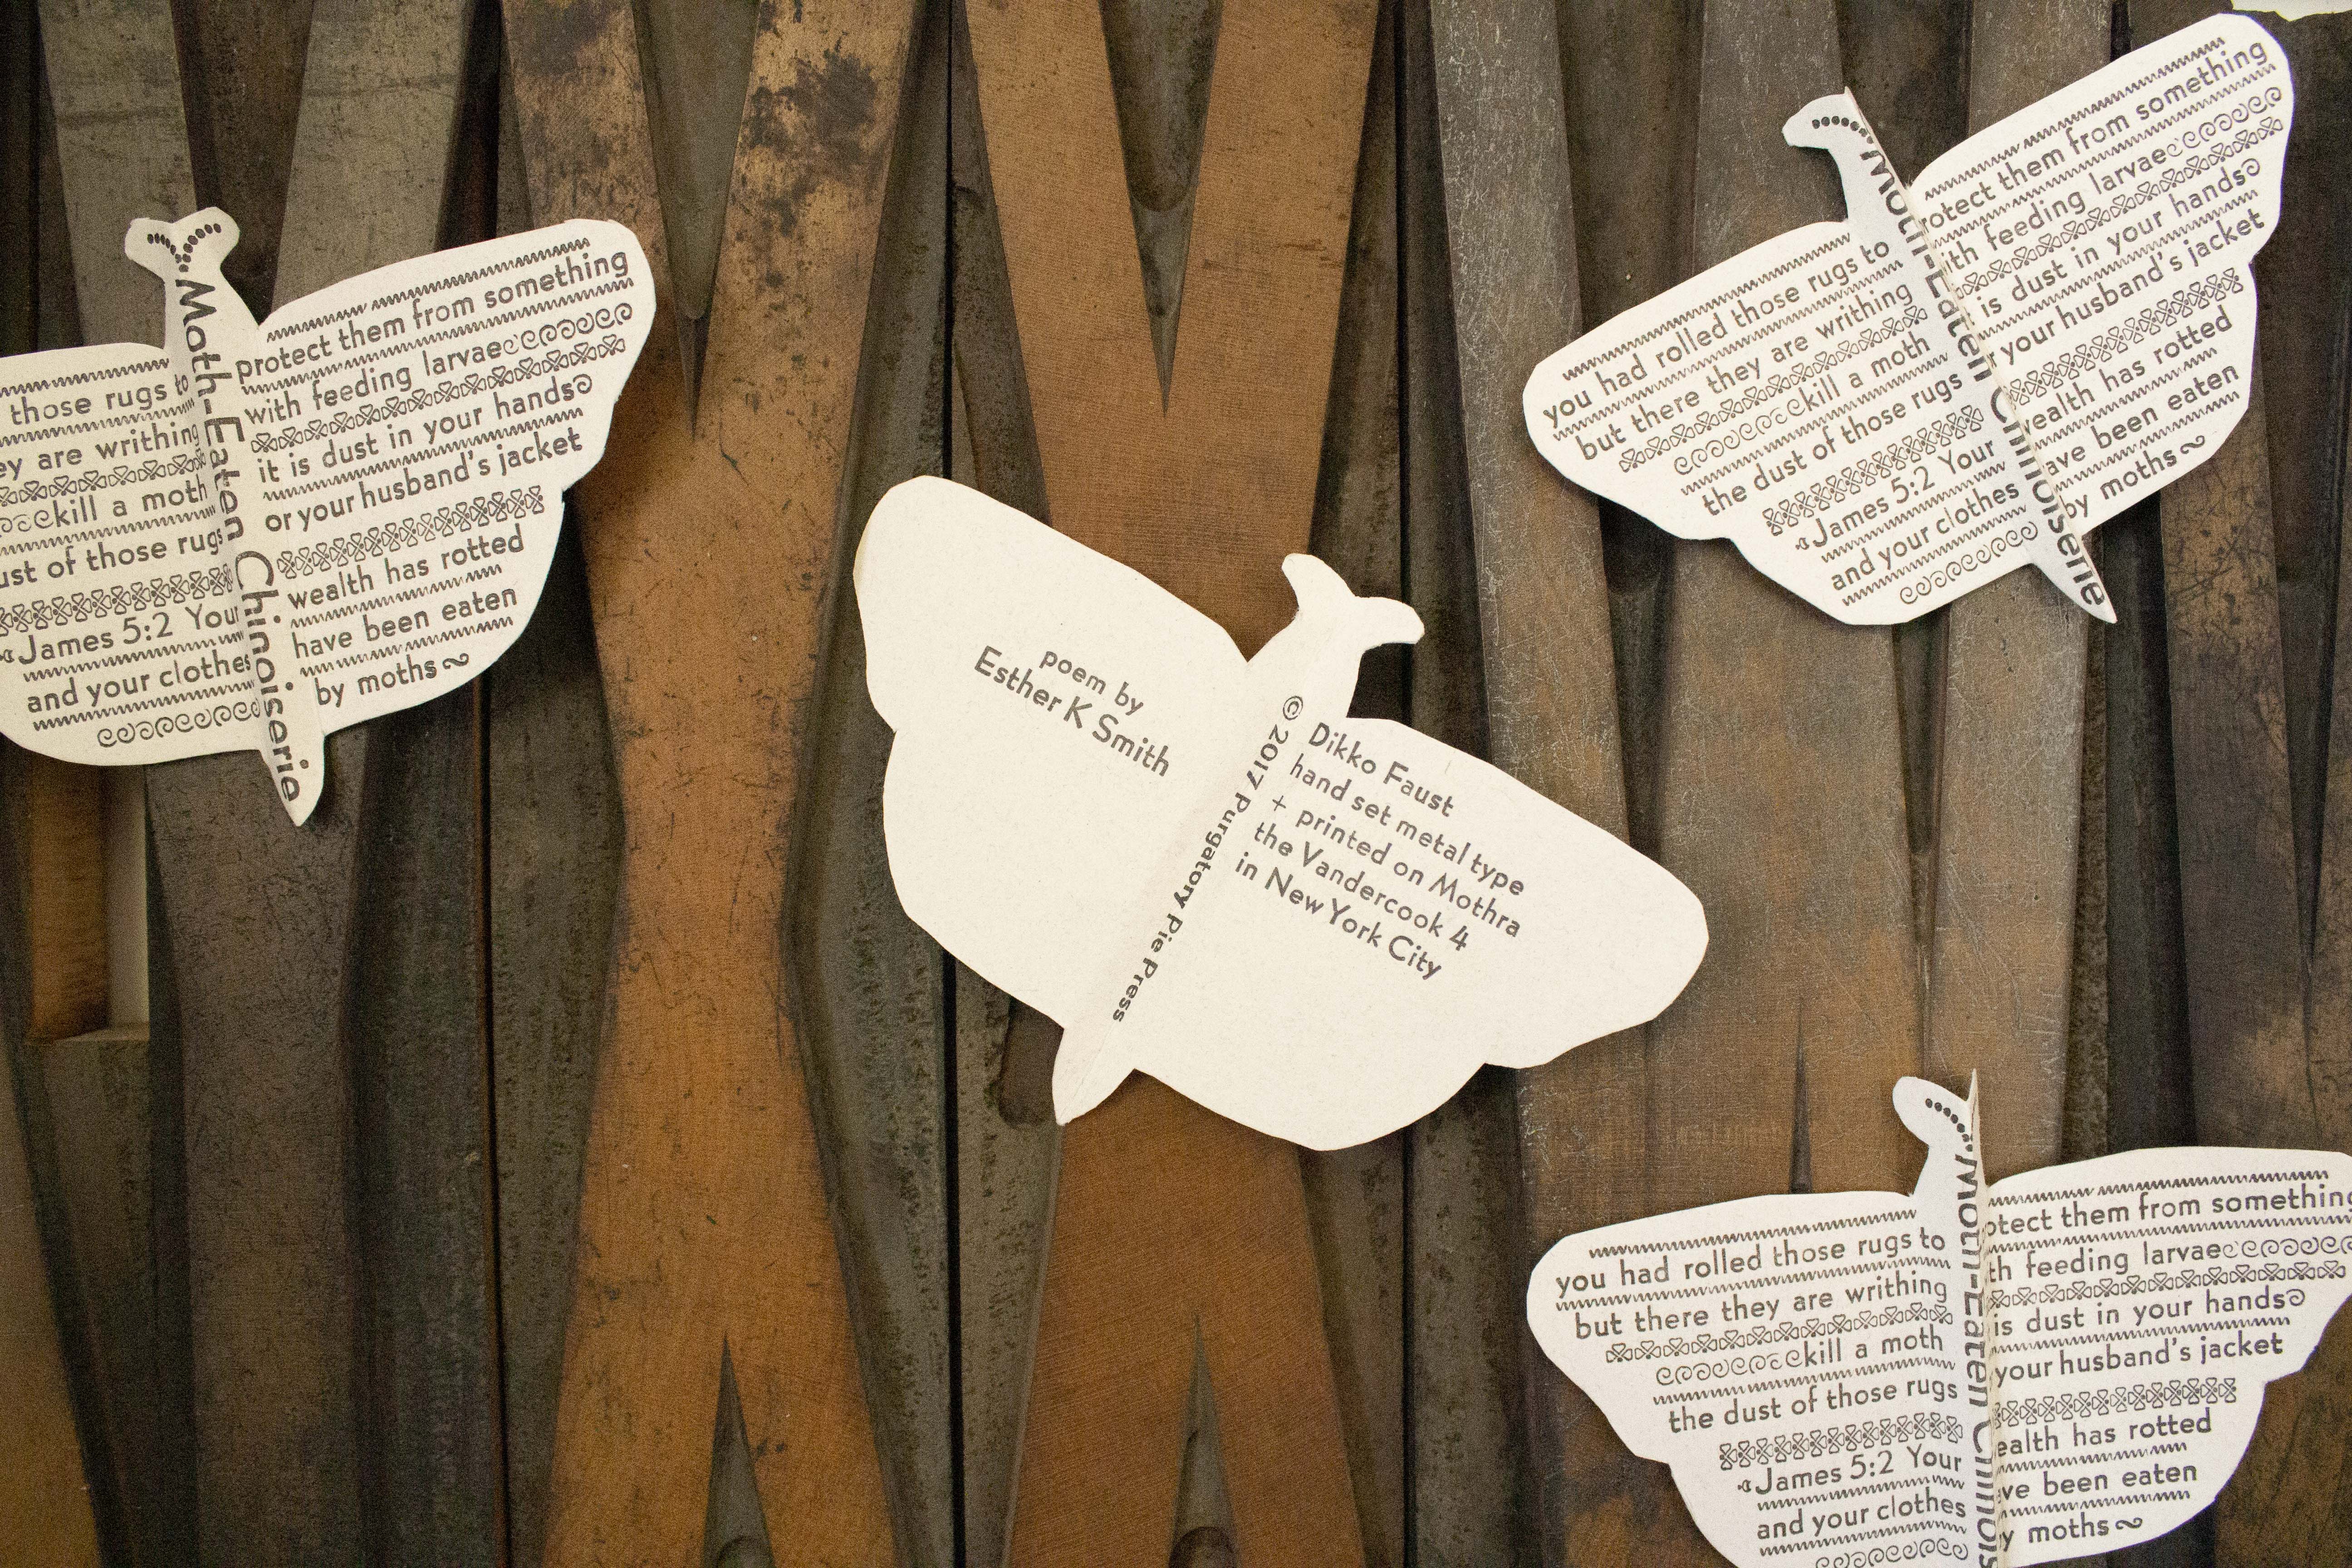 Moth-Eaten Chinoiserie
those rugs to
are writhing
kill a moth
of those rugs
James 5:2 Your
and your clothes
protect them from something
with feeding larvae
it is dust in your hands
or your husband's jacket
wealth has rotted
have been eaten
by moths
poem by
Esther K Smith
© 2017 Purgatory Pie Press
Dikko Faust
hand set metal type
+ printed on Mothra
the Vandercook 4
in New York City
Moth-Eaten Chinoiserie
you had rolled those rugs to
but there they are writhing
kill a moth
the dust of those rugs
James 5:2 Your
and your clothes
protect them from something
with feeding larvae
is dust in your hands
your husband's jacket
wealth has rotted
have been eaten
by moths
Moth-Eaten
you had rolled those rugs to
but there they are writhing
kill a moth
the dust of those rugs
James 5:2 Your
and your clothes
them from something
feeding larvae
is dust in your hands
your husband's jacket
wealth has rotted
have been eaten
moths